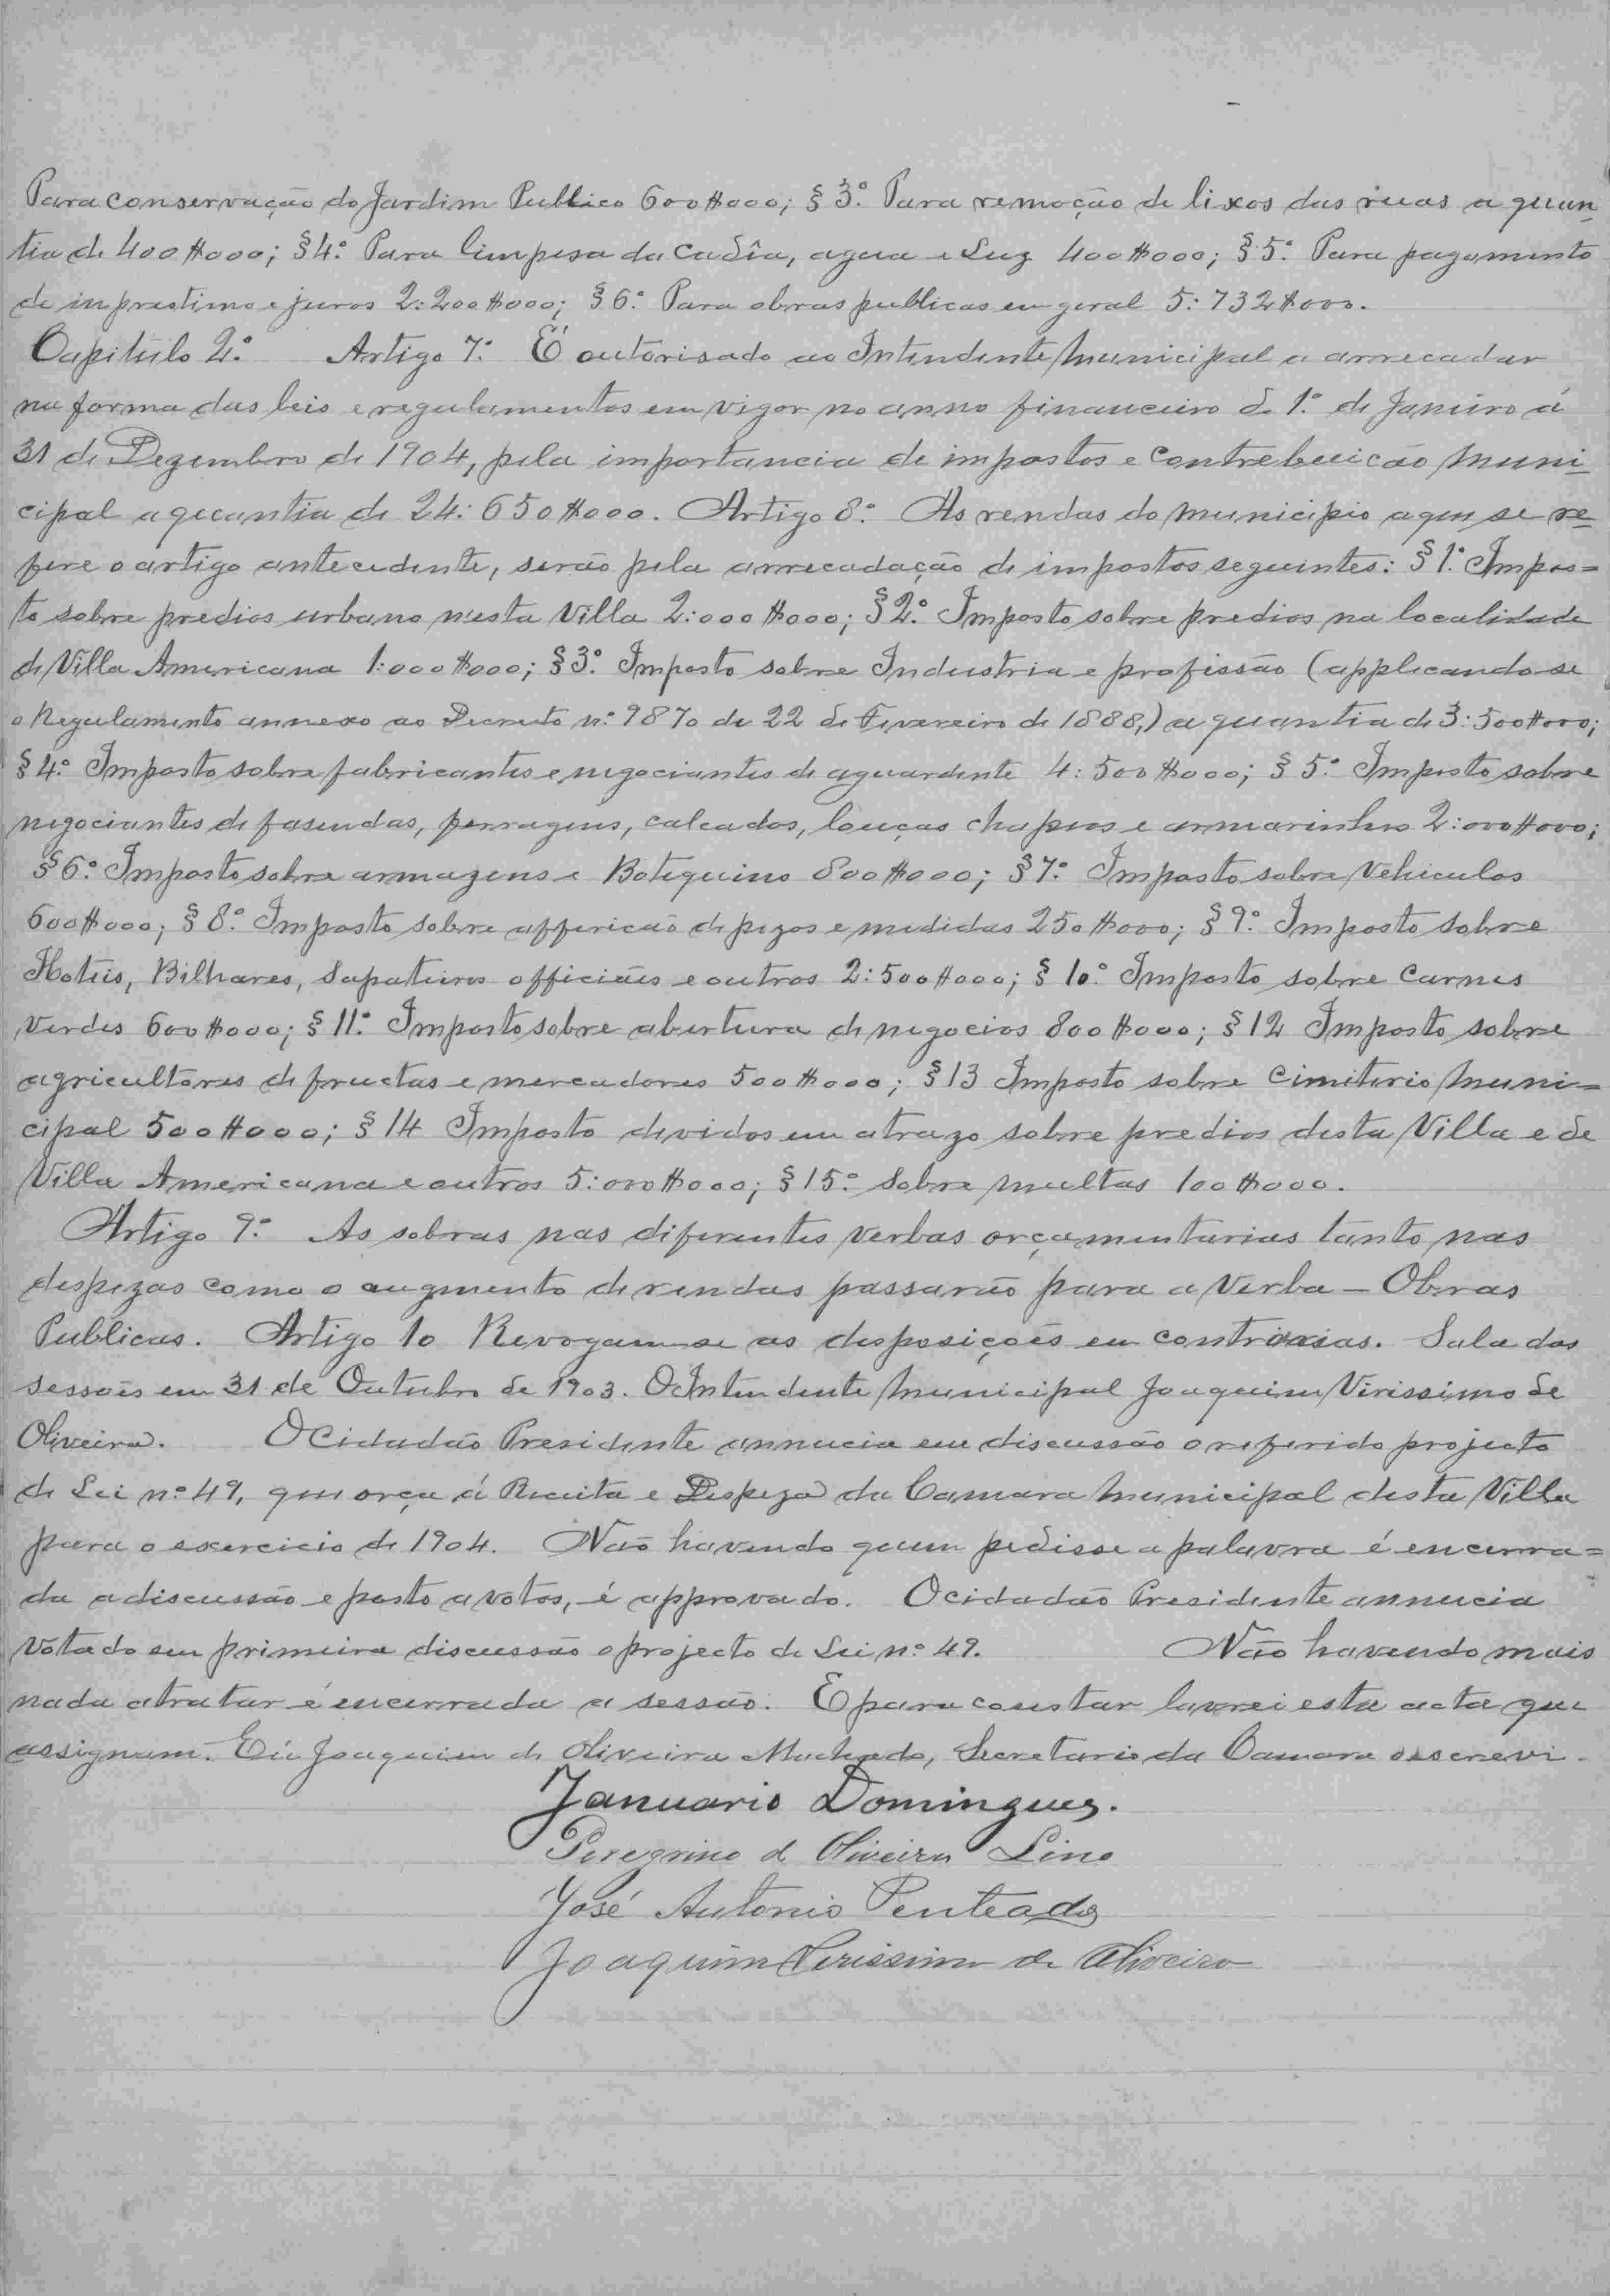 Para conservação do Jardim Publico 600$000; § 3º. Para remoção de lixos das ruas a quan
tia de 400$000; § 4º. Para limpesa da Cadêa, agua e Luz 400$000; § 5º. Para pagamento
de imprestimo e juros 2:200$000; § 6º. Para obras publicas em geral 5:732$000.
Capitulo 2º. Artigo 7º. É outorisado ao Intendente Municipal a arrecadar
na forma das leis e regulamentos em vigor no anno financeiro de 1º. de Janeiro á
31 de Dezembro de 1904, pela importancia de impostos e contrebuicão Muni
cipal a quantia de 24:650$000. Artigo 8º. As rendas do municipio a que se re
fere o artigo antecedente, serão pela arrecadação de impostos seguintes: § 1º. Impos=
to sobre predios urbano nesta Villa 2:000$000; § 2º. Imposto sobre predios na localidade
de Villa Americana 1:000$000; § 3º. Imposto sobre Industria e profissão (applicando-se
o Regulamento annexo ao Decreto nº. 9870 de 22 de Fevereiro de 1888,) a quantia de 3:500$000;
§ 4º. Imposto sobre fabricantes e negociantes de aguardente 4:500$000; § 5º. Imposto sobre
negociantes de fasendas, ferragens, calcados, louças chapeos e armarinhos 2:000$000;
§ 6º. Imposto sobre armazens e Botequins 800$000; § 7º. Imposto sobre Vehiculos
600$000; § 8º. Imposto sobre affericão de pezos e medidas 250$000; § 9º. Imposto sobre
Hoteis, Bilhares, Sapateiros officiães e outros 2:500$000; § 10º. Imposto sobre Carnes
Verdes 600$000; § 11º. Imposto sobre abertura de negocios 800$000; § 12 Imposto sobre
agricultores de fructas e mercadores 500$000; § 13 Imposto sobre Cimiterio Muni=
cipal 500$000; § 14 Imposto devidos em atrazo sobre predios desta Villa e de
Villa Americana e outros 5:000$000; § 15º. Sobre multas 100$000.
Artigo 9º. As sobras nas diferentes verbas orçamentarias tanto nas
despezas como o augmento de rendas passarão para a Verba — Obras
Publicas. Artigo 10 Revogam-se as desposiçoēs em contrarias. Sala das
sessoēs em 31 de Outubro de 1903. O Intendente Municipal Joaquim Virissimo de
Oliveira. O Cidadão Presidente annucia em discussão o referido projecto
de Lei nº 49, que orça á Receita e Despeza da Camara Municipal desta Villa
para o exercicio de 1904. Não havendo quem pedisse a palavra é encerra=
da a discussão e posto a votos, é approvado. O cidadão Presidente annucia
Votado em primeira discussão o projecto de Lei nº. 49. Não havendo mais
nada a tratar é encerrada a sessão. E para constar lavrei esta acta que
assignam. Eu Joaquim de Oliveira Machado, Secretario da Camara o escrevi.
Januario Domingues.
Peregrino de Oliveira Lino
José Antonio Penteado
Joaquim Verissimo de Oliveira